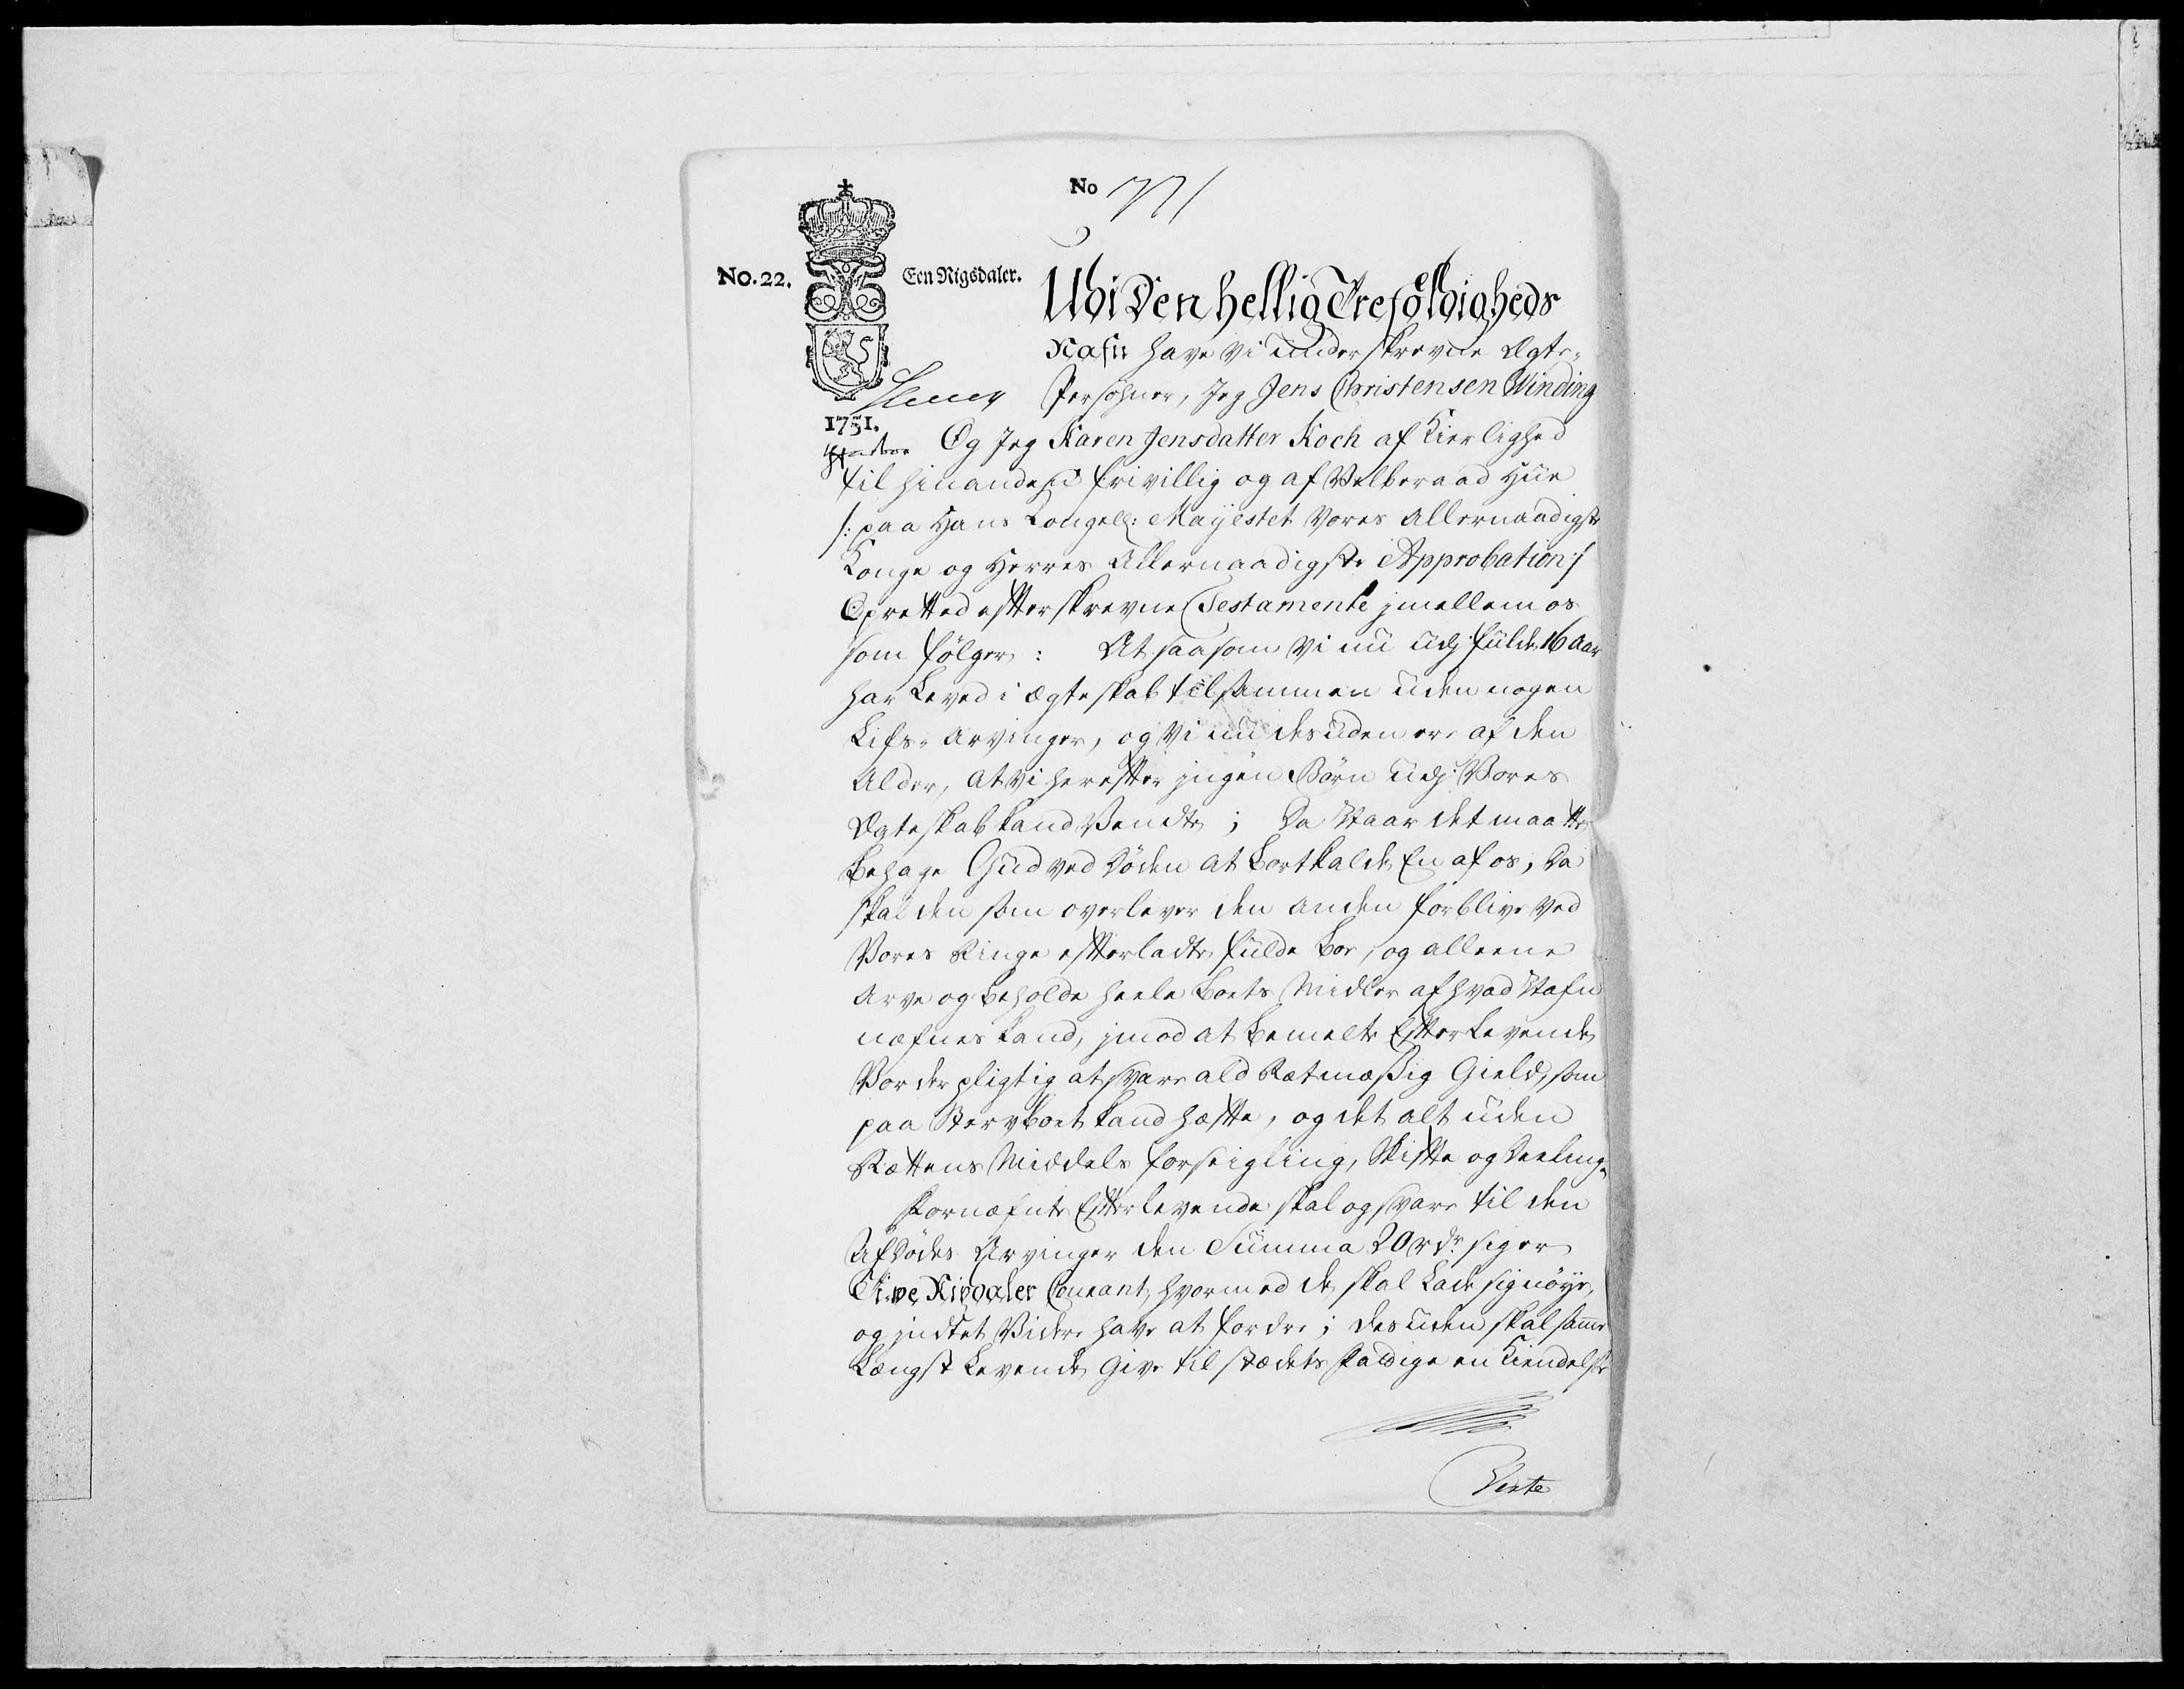 No 771
No. 22.
Een Rigsdaler.
Udi Den hellig Trefoldigheds
Nafn have Vi underskrevne Ægte-
Persohner, Jeg Jens Christensen Winding
1751.
Og Jeg Karen Jensdatter Koch af Kierlighed
til hinanden frivillig og af Velberaad Hue
/: paa Hans Kongell: Mayestet Vores Allernaadigste
Konge og Herres Allernaadigste Approbation :/
Opretted efterskrevne Testamente jmellem os
som følger: At saasom Vi nu udj fulde 16 Aar
har Leved i Ægteskab tilsammen uden nogen
Lifs-Arvinger, og Vi nu desuden ere af den
Alder, at Vi herefter jngen Børn udj Vores
Ægteskab kand Vendte; Da Naar det maatte
behage Gud ved Døden at bortkalde En af os, Da
skal den som overlever den anden forblive ved
Vores Ringe efterladte fulde boe, og alleene
Arve og beholde heele boets Midler af hvad Nafn
nefnes kand, jmod at bemelte Efterlevende
Vorder pligtig at svare ald Retmæssig Gield, som
paa Stervboet kand hæfte, og det alt uden
Rettens Middels forseigling, Skifte og Deeling.
Fornæfnte Efterlevende skal og svare til den
Afdødes Arvinger den Summa 20 rdr. siger
Tive Rixdaler Courant, hvormed de skal Lade sig nøye,
og jndtet Videre have at fordre; desuden skal samme
Længst Levende give til stædets Fattige en Kiendelse
Verte